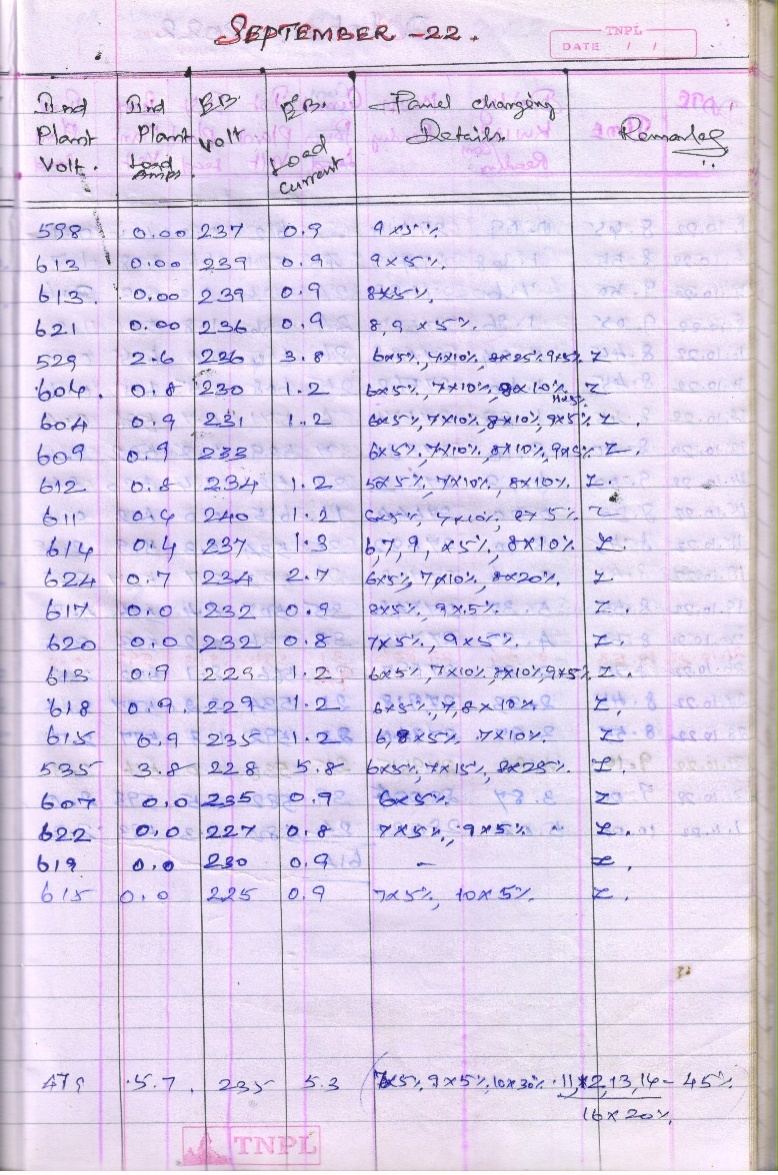 SEPTEMBER - 22.
TNPL
DATE / /
IInd Plant Volt. IInd Plant Load Amps EB. Volt EB. Load Current Panel changing Details. Remarks
598 0.00 237 0.9 9x5%
613 0.00 239 0.9 9x5%
613. 0.00 239 0.9 8x5%.
621 0.00 236 0.9 8,9 x 5%.
529 2.6 226 3.8 6x5%, 7x10%, 8x25% 9x5% Z
604. 0.8 230 1.2 6x5%, 7x10%, 8x10% Z
604 0.9 231 1.2 6x5%, 7x10%, 8x10%, 9x5% Z.
609 0.9 233 6x5%, 7x10%, 8x10%, 9x5% Z.
612 0.8 234 1.2 5x5%, 7x10%, 8x10%. Z.
611 0.4 240 1.2 8x5% Z
614 0.4 237 1.3 6,7,9, x5%, 8x10% Z.
624 0.7 234 2.7 6x5%, 7x10%, 8x20%. Z.
617 0.0 232 0.9 8x5%, 9x5%. Z.
620 0.0 232 0.8 7x5%, 9x5%. Z.
613 0.9 229 1.2 6x5%, 7x10%, 8x10%, 9x5% Z.
618 0.9. 229 1.2 6x5%, 7,8x10%. Z.
615 0.9 235 1.2 6,8x5%. 7x10%. Z
535 3.8 228 5.8 6x5%, 7x15%, 8x25%. Z.
607 0.0 235 0.9 6x5%. Z
622 0.0 227 0.8 7x5%, 9x5% - Z.
619 0.0 230 0.9 - Z.
615 0.0 225 0.9 7x5%, 10x5% Z.
479 5.7. 235 5.3 7x5%, 9x5%, 10x30%. 11,12,13,14 - 45%
16x20%.
TNPL